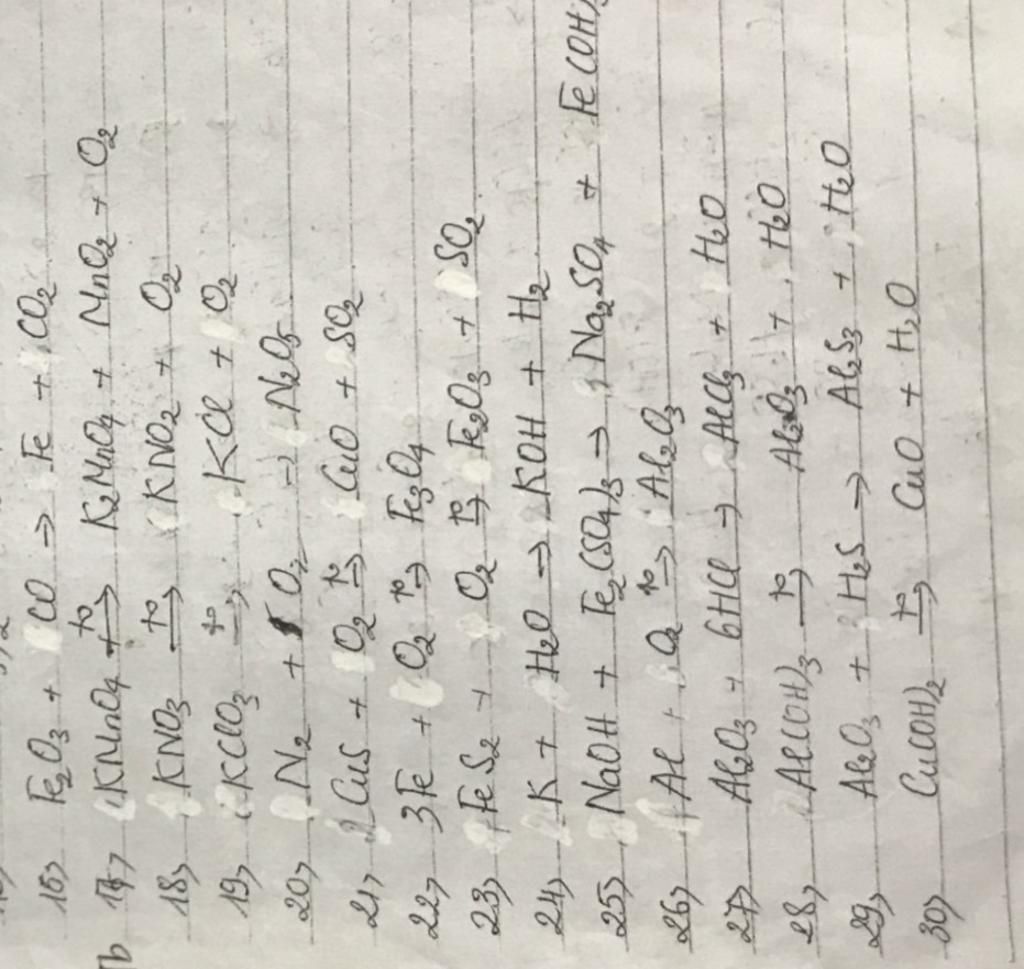 16, Fe₂O₃ + CO → Fe + CO₂
17, KMnO₄ t° → K₂MnO₄ + MnO₂ + O₂
18, KNO₃ t° → KNO₂ + O₂
19, KClO₃ t° → KCl + O₂
20, N₂ + O₂ → N₂O₅
21, 2CuS + O₂ t° → CuO + SO₂
22, 3Fe + O₂ t° → Fe₃O₄
23, FeS₂ + O₂ t° → Fe₂O₃ + SO₂
24, K + H₂O → KOH + H₂
25, NaOH + Fe₂(SO₄)₃ → Na₂SO₄ + Fe(OH)
26, Al + O₂ t° → Al₂O₃
27, Al₂O₃ + 6HCl → AlCl₃ + H₂O
28, Al(OH)₃ t° → Al₂O₃ + H₂O
29, Al₂O₃ + H₂S → Al₂S₃ + H₂O
30, Cu(OH)₂ t° → CuO + H₂O